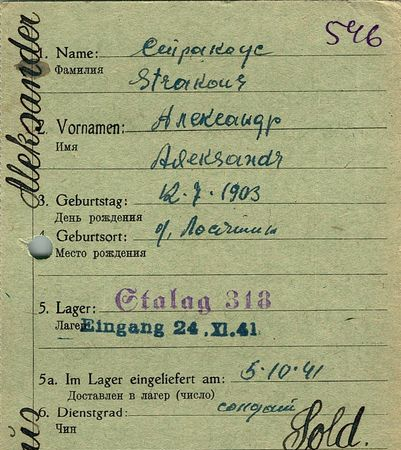 546
Aleksander
1. Name: Стракоус
Фамилия
Strakous
2. Vornamen: Александр
Имя
Aleksandr
3. Geburtstag: 12.7.1903
День рождения
4. Geburtsort: д.
Место рождения
5. Lager: Stalag 318
Лагерь Eingang 24. XI. 41
5a. Im Lager eingeliefert am: 5.10.41
Доставлен в лагер (число)
6. Dienstgrad: солдат
Чин
Sold.